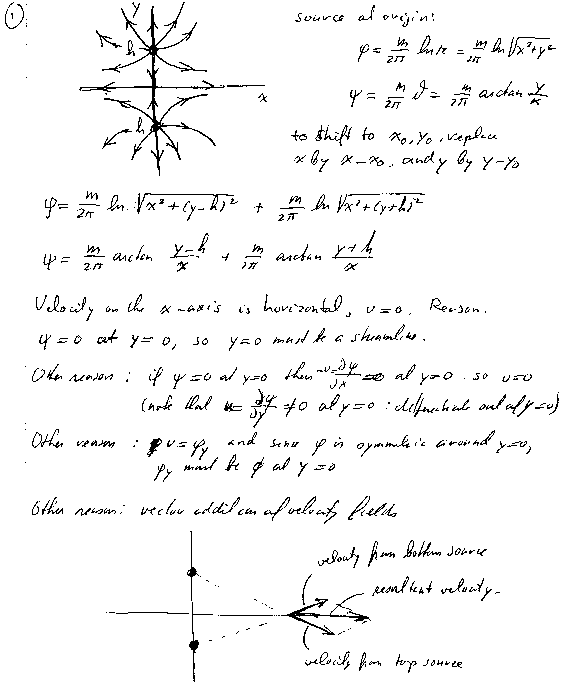 ①
y
source at origin:
h
φ = m/2π ln r = m/2π ln √x²+y²
x
ψ = m/2π ϑ = m/2π arctan y/x
h
to shift to x₀, y₀, replace
x by x-x₀ and y by y-y₀
φ = m/2π ln √x²+(y-h)² + m/2π ln √x²+(y+h)²
ψ = m/2π arctan y-h/x + m/2π arctan y+h/x
Velocity on the x-axis is horizontal, v=0. Reason.
ψ=0 at y=0, so y=0 must be a streamline.
Other reason: if ψ=0 at y=0 then -v=∂ψ/∂x=0 at y=0 so v=0
(note that u=∂ψ/∂y≠0 at y=0: differentiate out at y=0)
Other reason: v=φy and since φ is symmetric around y=0,
φy must be 0 at y=0
Other reason: vector addition of velocity fields
velocity from bottom source
resultant velocity
velocity from top source